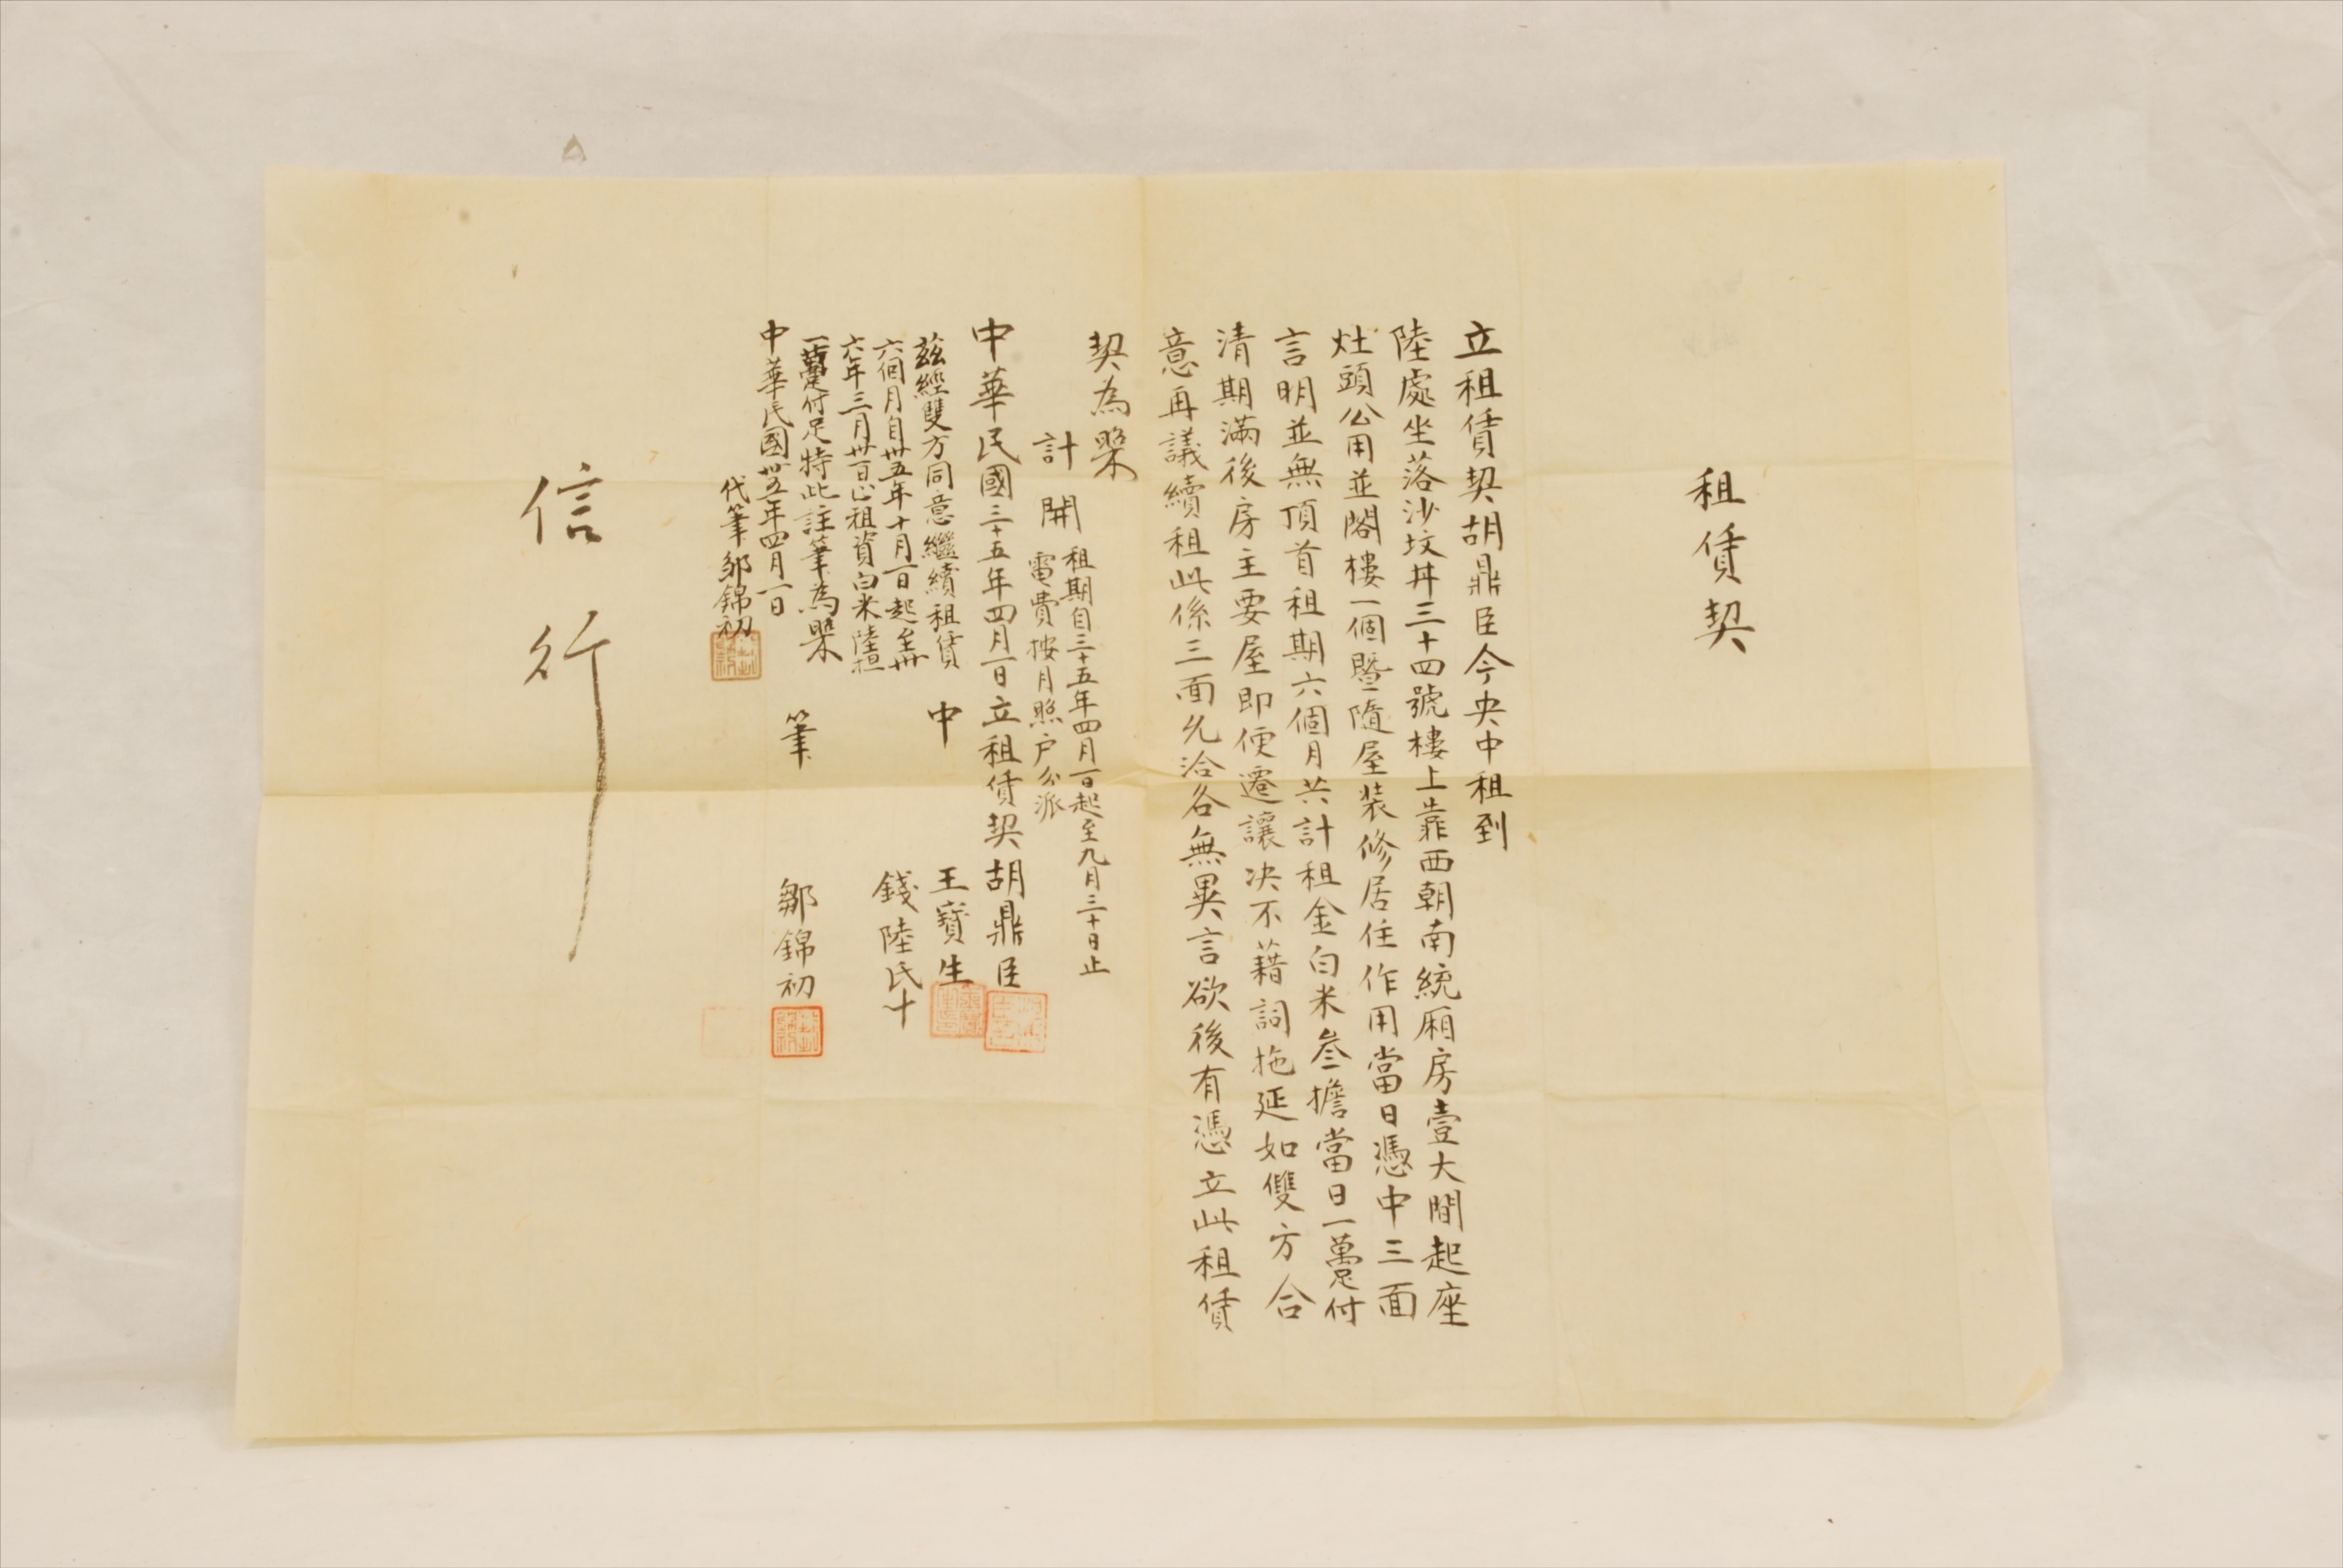 租賃契
立租賃契胡鼎臣今央中租到
陸處坐落沙坟丼三十四號樓上靠西朝南統廂房壹大間起座
灶頭公用並閣樓一個暨隨屋装修居住作用當日憑中三面
言明並無頂首租期六個月共計租金白米叁擔當日一躉付
清期滿後房主要屋即便遷讓决不藉詞拖延如雙方合
意再議續租此係三面允洽各無異言欲後有憑立此租賃
契為㮣
計開
租期自三十五年四月一日起至九月三十日止
電費按月照户分派
中華民國三十五年四月一日立租賃契胡鼎臣
中 王寳生
錢陸氏十
茲經雙方同意繼續租賃
六個月自卅五年十月一日起至卅
六年三月卅一日止租資白米陸担
一躉付足特此註筆為㮣
筆 鄒錦初
中華民國卅五年四月一日
代筆 邹錦初
信行